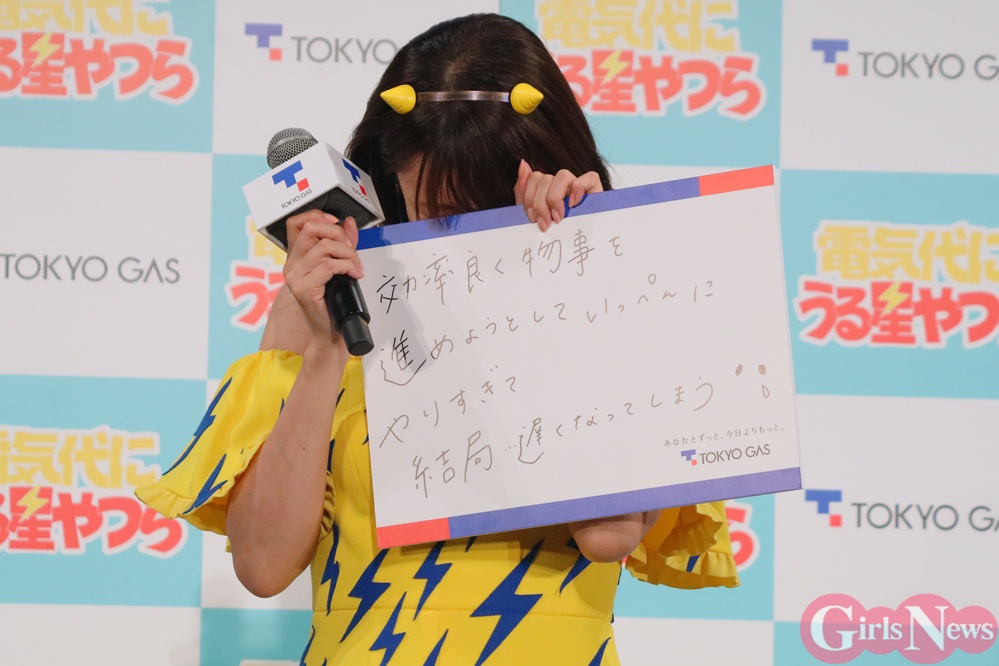 電気代に
うる星やつら
TOKYO
電気代に
る星やつら
TOKYO GAS
TOKYO GAS
TOKYO GAS
電気代に
うる星やつら
効率良く物事を
進めようとしていっぺんに
やりすぎて
結局…遅くなってしまう
あなたとずっと、今日よりもっと。
TOKYO GAS
電気代に
る星やつら
TOKYO GA
GirlsNews